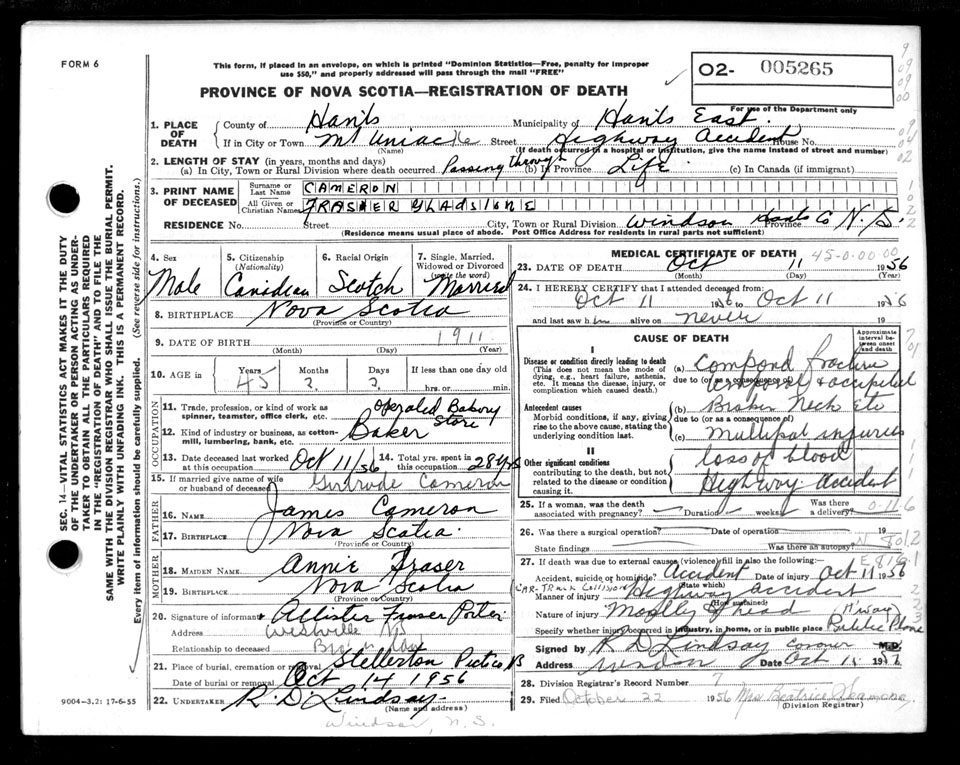 FORM 6
This form, if placed in an envelope, on which is printed "Dominion Statistics—Free, penalty for improper
use $50," and properly addressed will pass through the mail "FREE"
02- 005265
PROVINCE OF NOVA SCOTIA—REGISTRATION OF DEATH
For use of the Department only
1. PLACE OF DEATH
County of Hants Municipality of Hants East.
If in City or Town Mt Uniacke Street Highway Accident House No.
(Name) (If death occurred in a hospital or institution, give the name instead of street and number)
2. LENGTH OF STAY (in years, months and days)
(a) In City, Town or Rural Division where death occurred Passing through (b) In Province Life (c) In Canada (if immigrant)
3. PRINT NAME OF DECEASED
Surname or Last Name CAMERON
All Given or Christian Names FRASHER GLADSIONE
RESIDENCE No. Street City, Town or Rural Division Windsor Hants Co Province N.S.
(Residence means usual place of abode. Post Office Address for residents in rural parts not sufficient)
4. Sex Male
5. Citizenship (Nationality) Canidian
6. Racial Origin Scotch
7. Single, Married, Widowed or Divorced (write the word) Married
8. BIRTHPLACE Nova Scotia
(Province or Country)
9. DATE OF BIRTH 1911
(Month) (Day) (Year)
10. AGE in Years 45 Months ? Days ? If less than one day old hrs. or min.
OCCUPATION
11. Trade, profession, or kind of work as spinner, teamster, office clerk, etc. operated Bakery Store
12. Kind of industry or business, as cotton-mill, lumbering, bank, etc. Baker
13. Date deceased last worked at this occupation Oct 11/56 14. Total yrs. spent in this occupation 28 yrs
15. If married give name of wife or husband of deceased Gertrude Cameron
FATHER
16. NAME James Cameron
17. BIRTHPLACE Nova Scotia
(Province or Country)
MOTHER
18. MAIDEN NAME Annie Fraser
19. BIRTHPLACE Nova Scotia
(Province or Country)
20. Signature of informant Allister Fraser Porter
Address Westville NS
Relationship to deceased
21. Place of burial, cremation or removal Stellerton Pictou
Date of burial or removal Oct 14 1956
22. UNDERTAKER R. D. Lindsay
(Name and address)
Windsor, N.S.
9004-3.2: 17-6-55
MEDICAL CERTIFICATE OF DEATH
45-0-00-00
23. DATE OF DEATH Oct 11 1956
(Month) (Day)
24. I HEREBY CERTIFY that I attended deceased from
Oct 11 1956 to Oct 11 1956
and last saw him alive on never 19
CAUSE OF DEATH
Approximate interval between onset and death
I
Disease or condition directly leading to death
(This does not mean the mode of dying, e.g., heart failure, asthenia, etc. It means the disease, injury, or complication which caused death.)
(a) Compond fracture
due to (or as a consequence of) & occipital
Antecedent causes
Morbid conditions, if any, giving rise to the above cause, stating the underlying condition last.
(b) Broken Neck Etc
due to (or as a consequence of)
(c) Multipal injuries
II
Other significant conditions
contributing to the death, but not related to the disease or condition causing it.
loss of blood
Highway Accident
25. If a woman, was the death associated with pregnancy? Duration weeks Was there a delivery?
26. Was there a surgical operation? Date of operation 19
State findings Was there an autopsy?
27. If death was due to external causes (violence) fill in also the following:
Accident, suicide or homicide? Accident Date of injury Oct 11 1956
(State which)
CAR-TRUCK COLLISION
Manner of injury Highway accident
(How sustained)
Nature of injury Moslley head
Specify whether injury occurred in industry, in home, or in public place (H'way) Public Place
Signed by R D Lindsay Coroner M.D.
Address Windsor Date Oct
28. Division Registrar's Record Number 7
29. Filed October 22 1956 Mrs Beatrice
(Division Registrar)
SEC. 14—VITAL STATISTICS ACT MAKES IT THE DUTY
OF THE UNDERTAKER OR PERSON ACTING AS UNDER-
TAKER TO OBTAIN ALL THE PARTICULARS REQUIRED
IN THE "REGISTRATION OF DEATH" AND TO FILE THE
SAME WITH THE DIVISION REGISTRAR WHO SHALL ISSUE THE BURIAL PERMIT.
WRITE PLAINLY WITH UNFADING INK. THIS IS A PERMANENT RECORD.
Every item of information should be carefully supplied. (See reverse side for instructions.)